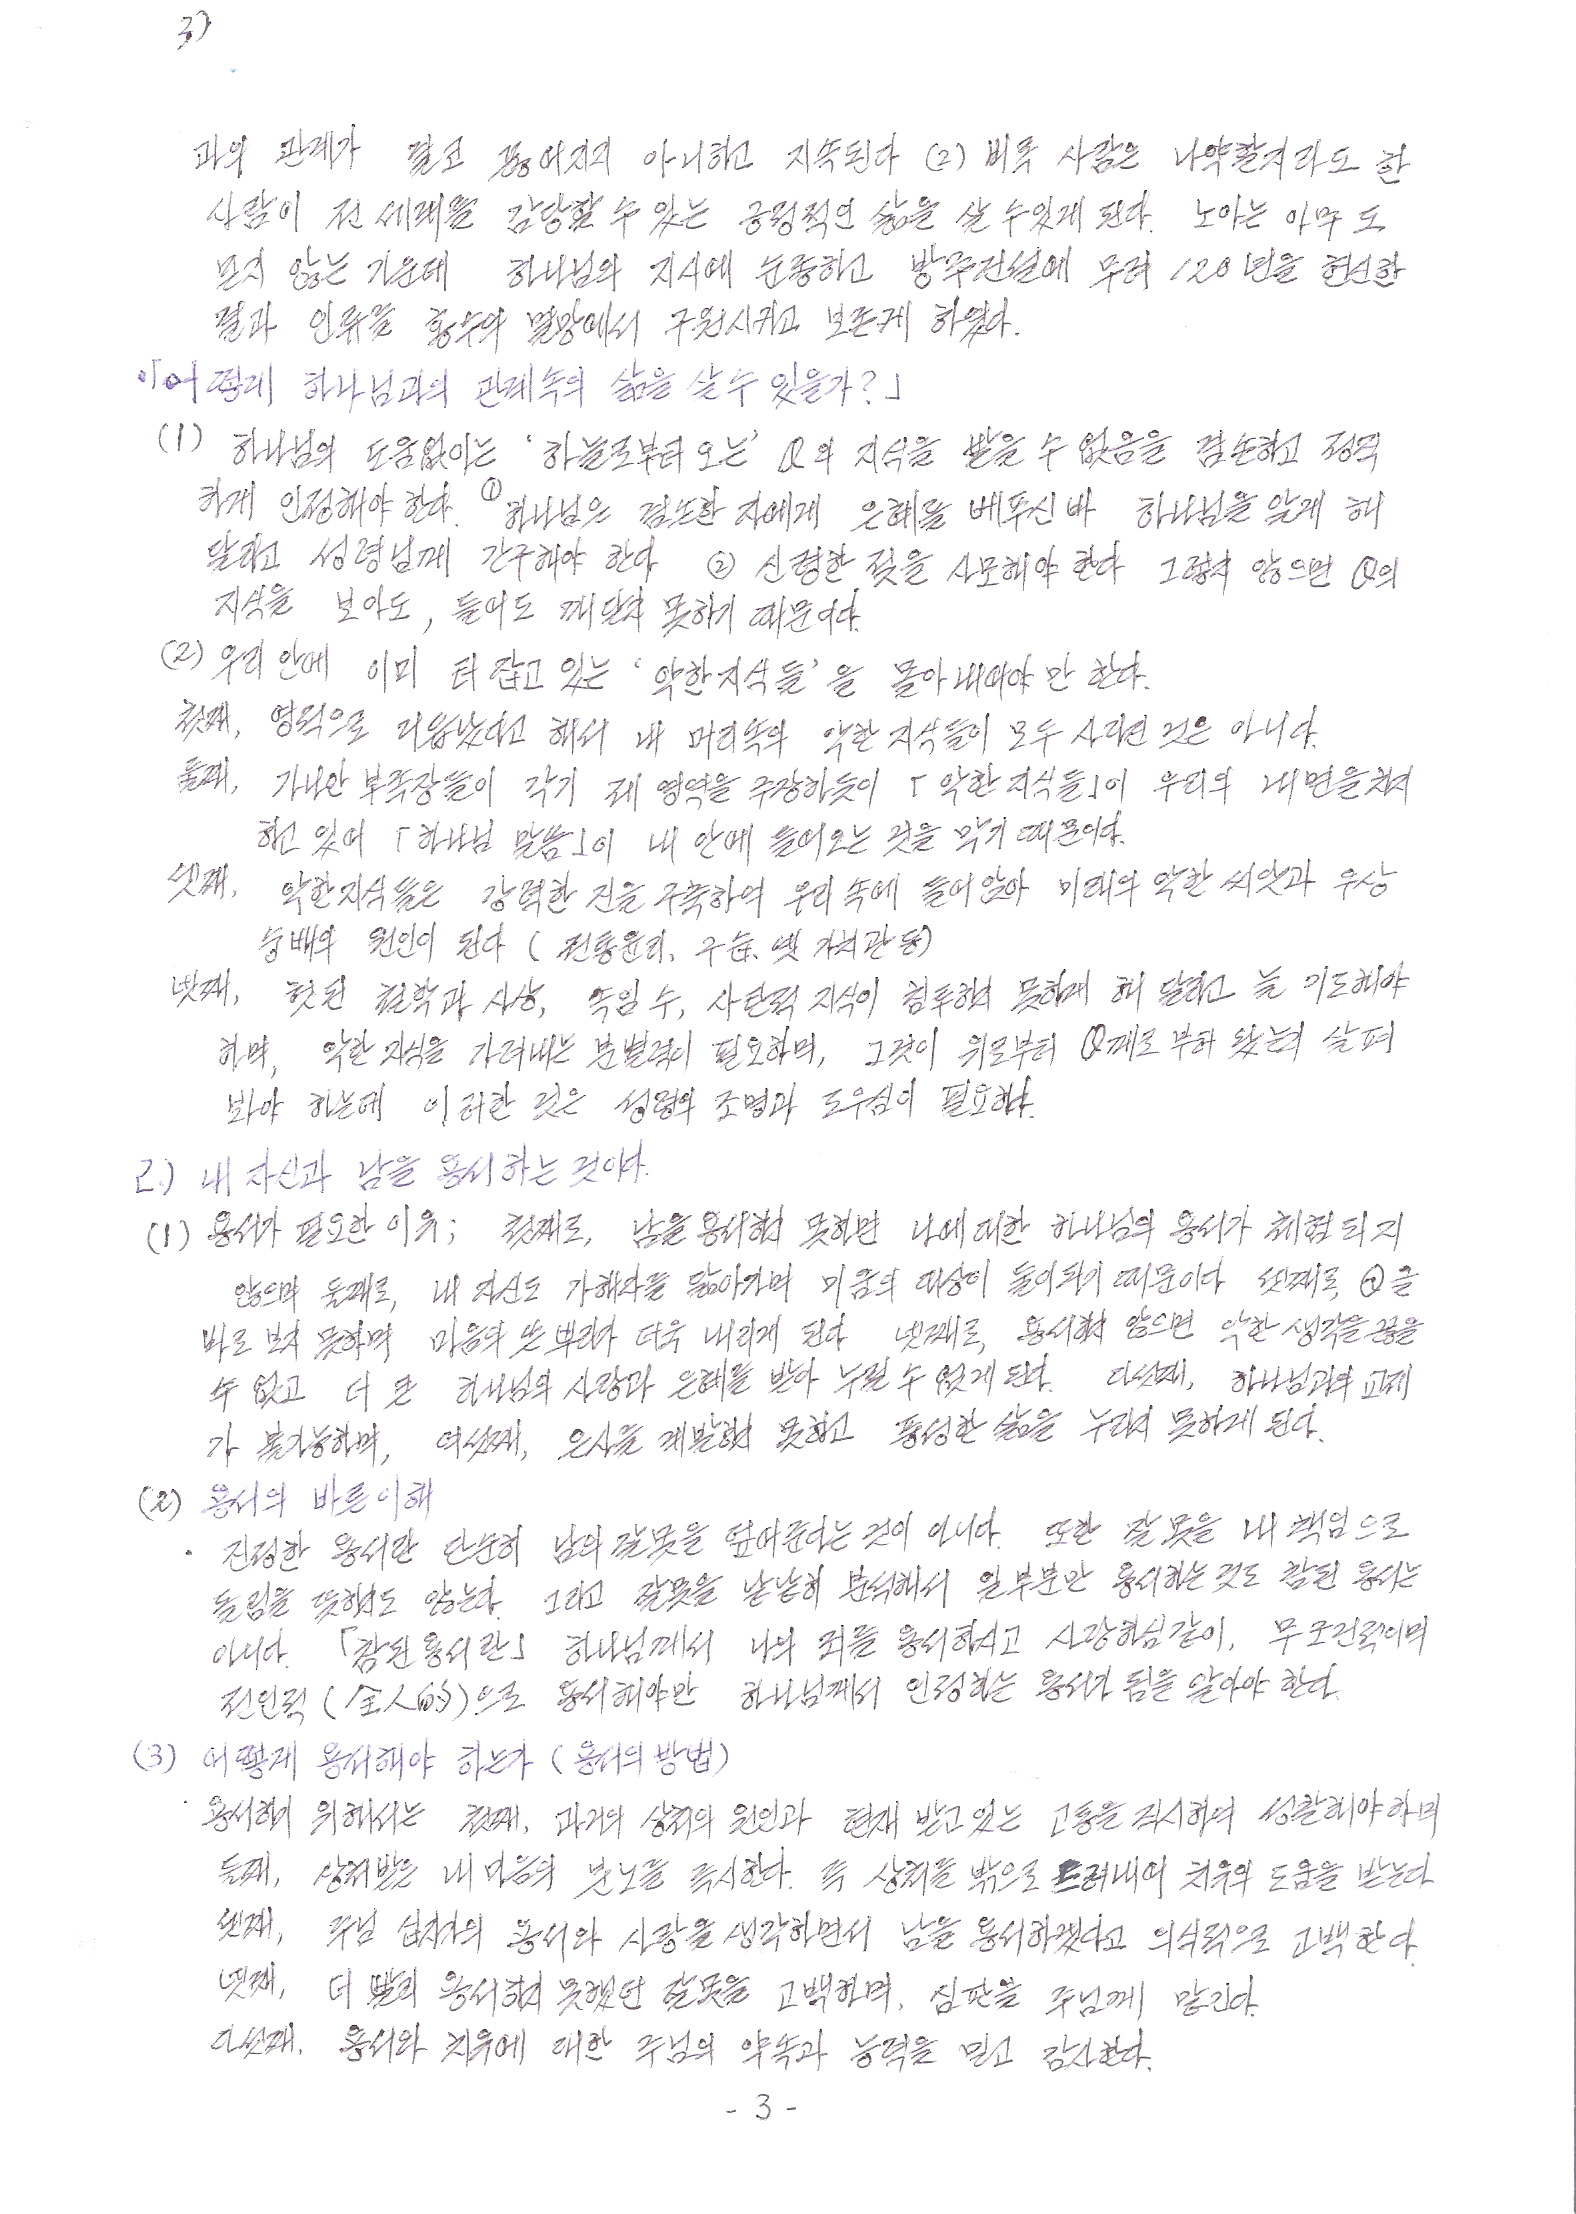 3)
과의 관계가 결코 끊어지지 아니하고 지속된다 (2) 비록 사람은 나약할지라도 한
사람이 전 세계를 감당할 수 있는 긍정적인 삶을 살 수 있게 된다. 노아는 아무 도
믿지 않는 가운데 하나님의 지시에 순종하고 방주건설에 무려 120년을 헌신한
결과 인류를 홍수의 멸망에서 구원시키고 보존케 하였다.
「어떻게 하나님과의 관계속의 삶을 살 수 있을가?」
(1) 하나님의 도움없이는 '하늘로부터 오는' 의 지식을 받을 수 없음을 겸손하고 정직
하게 인정해야 한다. ① 하나님은 겸손한 자에게 은혜를 베푸신 바 하나님을 알게 해
달라고 성령님께 간구해야 한다 ② 신령한 젖을 사모해야 한다 그렇지 않으면 의
지식을 보아도, 들어도 깨닫지 못하기 때문이다.
(2) 우리 안에 이미 터 잡고 있는 '악한 지식들'을 몰아내어야 만 한다.
첫째, 영적으로 거듭났다고 해서 내 머리속의 악한 지식들이 모두 사라진 것은 아니다.
둘째, 가나안 부족장들이 각기 제 영역을 주장하듯이 「악한 지식들」이 우리의 내면을 차지
하고 있어 「하나님 말씀」이 내 안에 들어오는 것을 막기 때문이다.
셋째, 악한 지식들은 강력한 진을 구축하여 우리 속에 들어앉아 미래의 악한 씨앗과 우상
숭배의 원인이 된다 ( 전통윤리, 구습, 옛 가치관 등)
넷째, 헛된 철학과 사상, 속임 수, 사탄적 지식이 침투하지 못하게 해 달라고 늘 기도해야
하며, 악한 지식을 가려내는 분별력이 필요하며, 그것이 위로부터 께로 부터 왔는지 살펴
봐야 하는데 이러한 것은 성령의 조명과 도우심이 필요하다.
2.) 내 자신과 남을 용서하는 것이다.
(1) 용서가 필요한 이유; 첫째로, 남을 용서하지 못하면 나에 대한 하나님의 용서가 체험되지
않으며 둘째로, 내 자신도 가해자를 닮아가며 미움의 대상이 둘이되기 때문이다 셋째로, 을
바로 보지 못하며 마음의 쓴 뿌리가 더욱 내리게 된다 넷째로, 용서하지 않으면 악한 생각을 끊을
수 없고 더 큰 하나님의 사랑과 은혜를 받아 누릴 수 없게 된다. 다섯째, 하나님과의 교제
가 불가능하며, 여섯째, 은사를 개발하지 못하고 풍성한 삶을 누리지 못하게 된다.
(2) 용서의 바른 이해
· 진정한 용서란 단순히 남의 잘못을 덮어준다는 것이 아니다. 또한 잘못을 내 책임으로
돌림을 뜻하지도 않는다. 그리고 잘못을 낱낱히 분석해서 일부분만 용서하는 것도 참된 용서는
아니다. 「참된 용서란」 하나님께서 나의 죄를 용서하시고 사랑하심같이, 무조건적이며
전인적(全人的)으로 용서해야만 하나님께서 인정하는 용서가 됨을 알아야 한다.
(3) 어떻게 용서해야 하는가 (용서의 방법)
· 용서하기 위해서는 첫째, 과거의 상처의 원인과 현재 받고 있는 고통을 직시하여 성찰해야 하며
둘째, 상처받은 내 마음의 분노를 직시한다. 즉 상처를 밖으로 드러내어 치유의 도움을 받는다
셋째, 주님 십자가의 용서와 사랑을 생각하면서 남을 용서하겠다고 의식적으로 고백한다.
넷째, 더 빨리 용서하지 못했던 잘못을 고백하며, 심판을 주님께 맡긴다.
다섯째, 용서와 치유에 대한 주님의 약속과 능력을 믿고 감사한다.
- 3 -